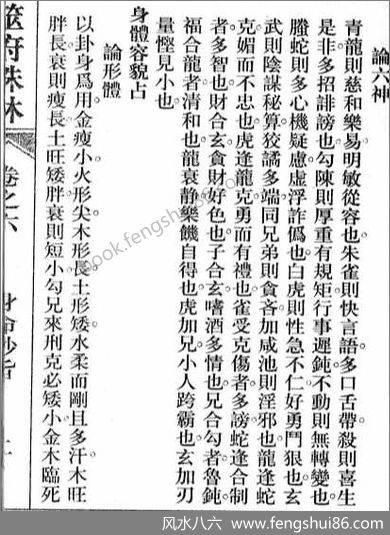 論六神
青龍則慈和樂易明敏從容也朱雀則快言語多口舌帶殺則喜生
是非多招誹謗也勾陳則厚重有規矩行事遲鈍不動則無轉變也
螣蛇則多心機疑慮虛浮詐僞也白虎則性急不仁好勇鬥狠也玄
武則陰謀秘算狡譎多端同兄弟則貪吝加咸池則淫邪也龍逢蛇
克媚而不忠也虎逢龍克勇而有禮也雀受克傷者多謗蛇逢合制
者多智也財合玄貪財好色也子合玄嗜酒多情也兄合勾者魯鈍
福合龍者清和也龍衰靜樂饑自得也虎加兄小人跨霸也玄加刃
量慳見小也
身體容貌占
論形體
以卦身爲用金瘦小火形尖木形長土形矮水柔而剛且多汗木旺
胖長衰則瘦長土旺矮胖衰則短小勾兄來刑克必矮小金木臨死
筮府珠林 卷之六 身命妙旨
book.fengshui86.com
风水八六 | www.fengshui86.com